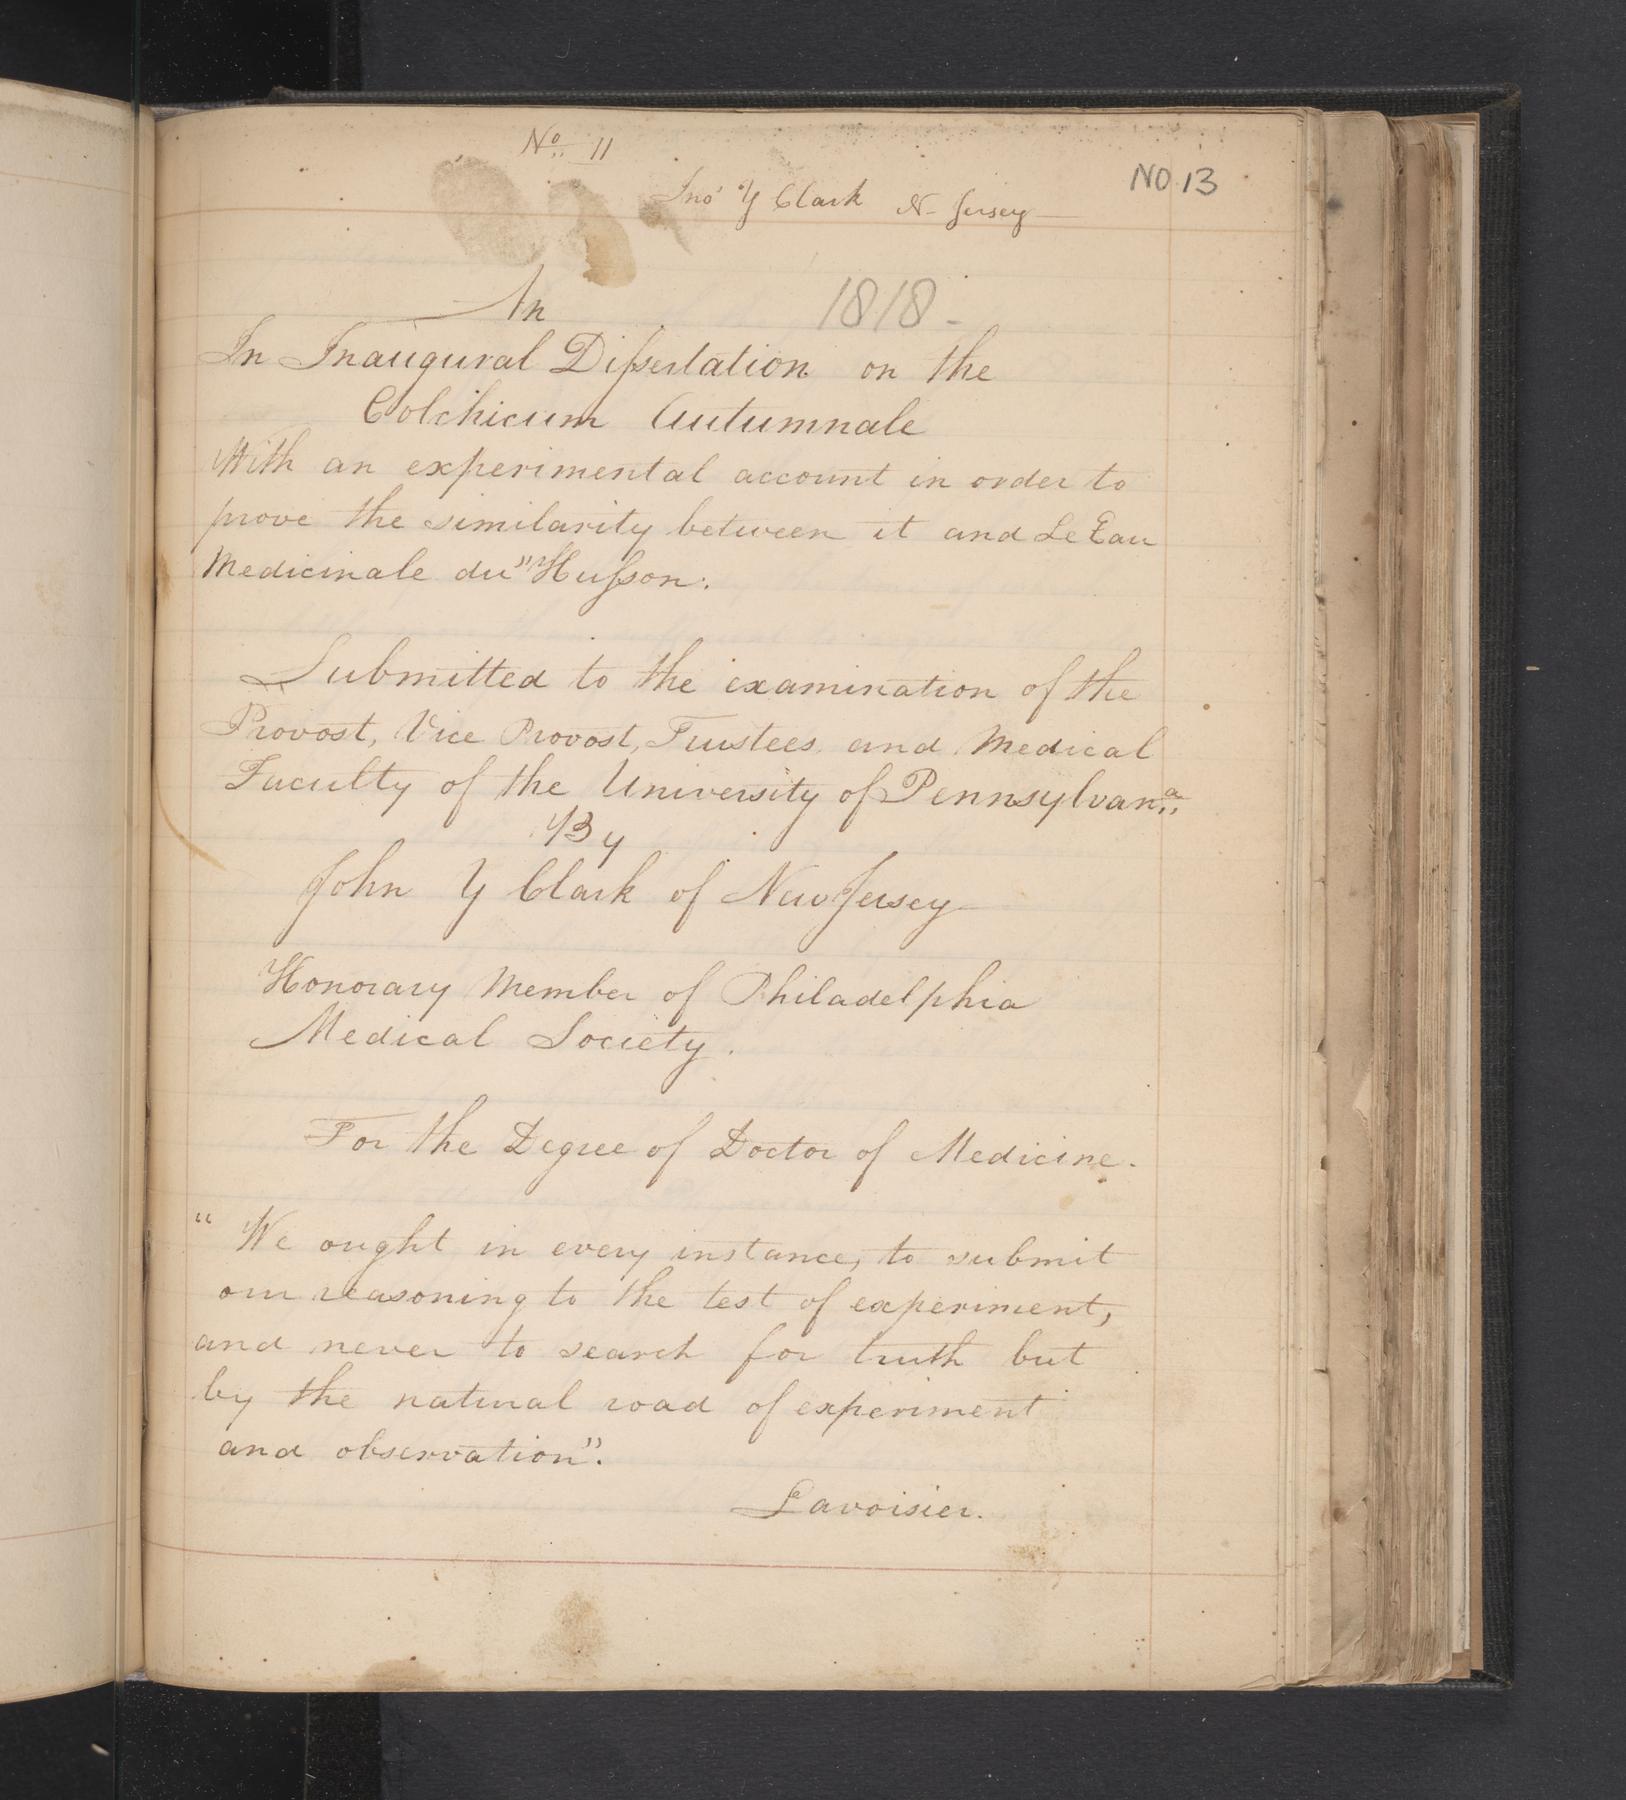 No 11
NO 13
Jno Y Clark N- Jersey
An
1818-
In Inaugural Dissertation on the
Colchicum Autumnale
With an experimental account in order to
prove the similarity between it and Le Eau
Medicinale du "Husson.
Submitted to the examination of the
Provost, Vice Provost, Trustees and Medical
Faculty of the University of Pennsylvana
By
John Y Clark of New Jersey
Honorary Member of Philadelphia
Medical Society.
For the Degree of Doctor of Medicine.
" We ought in every instance, to submit
our reasoning to the test of experiment,
and never to search for truth but
by the natural road of experiment
and observation".
Lavoisier.